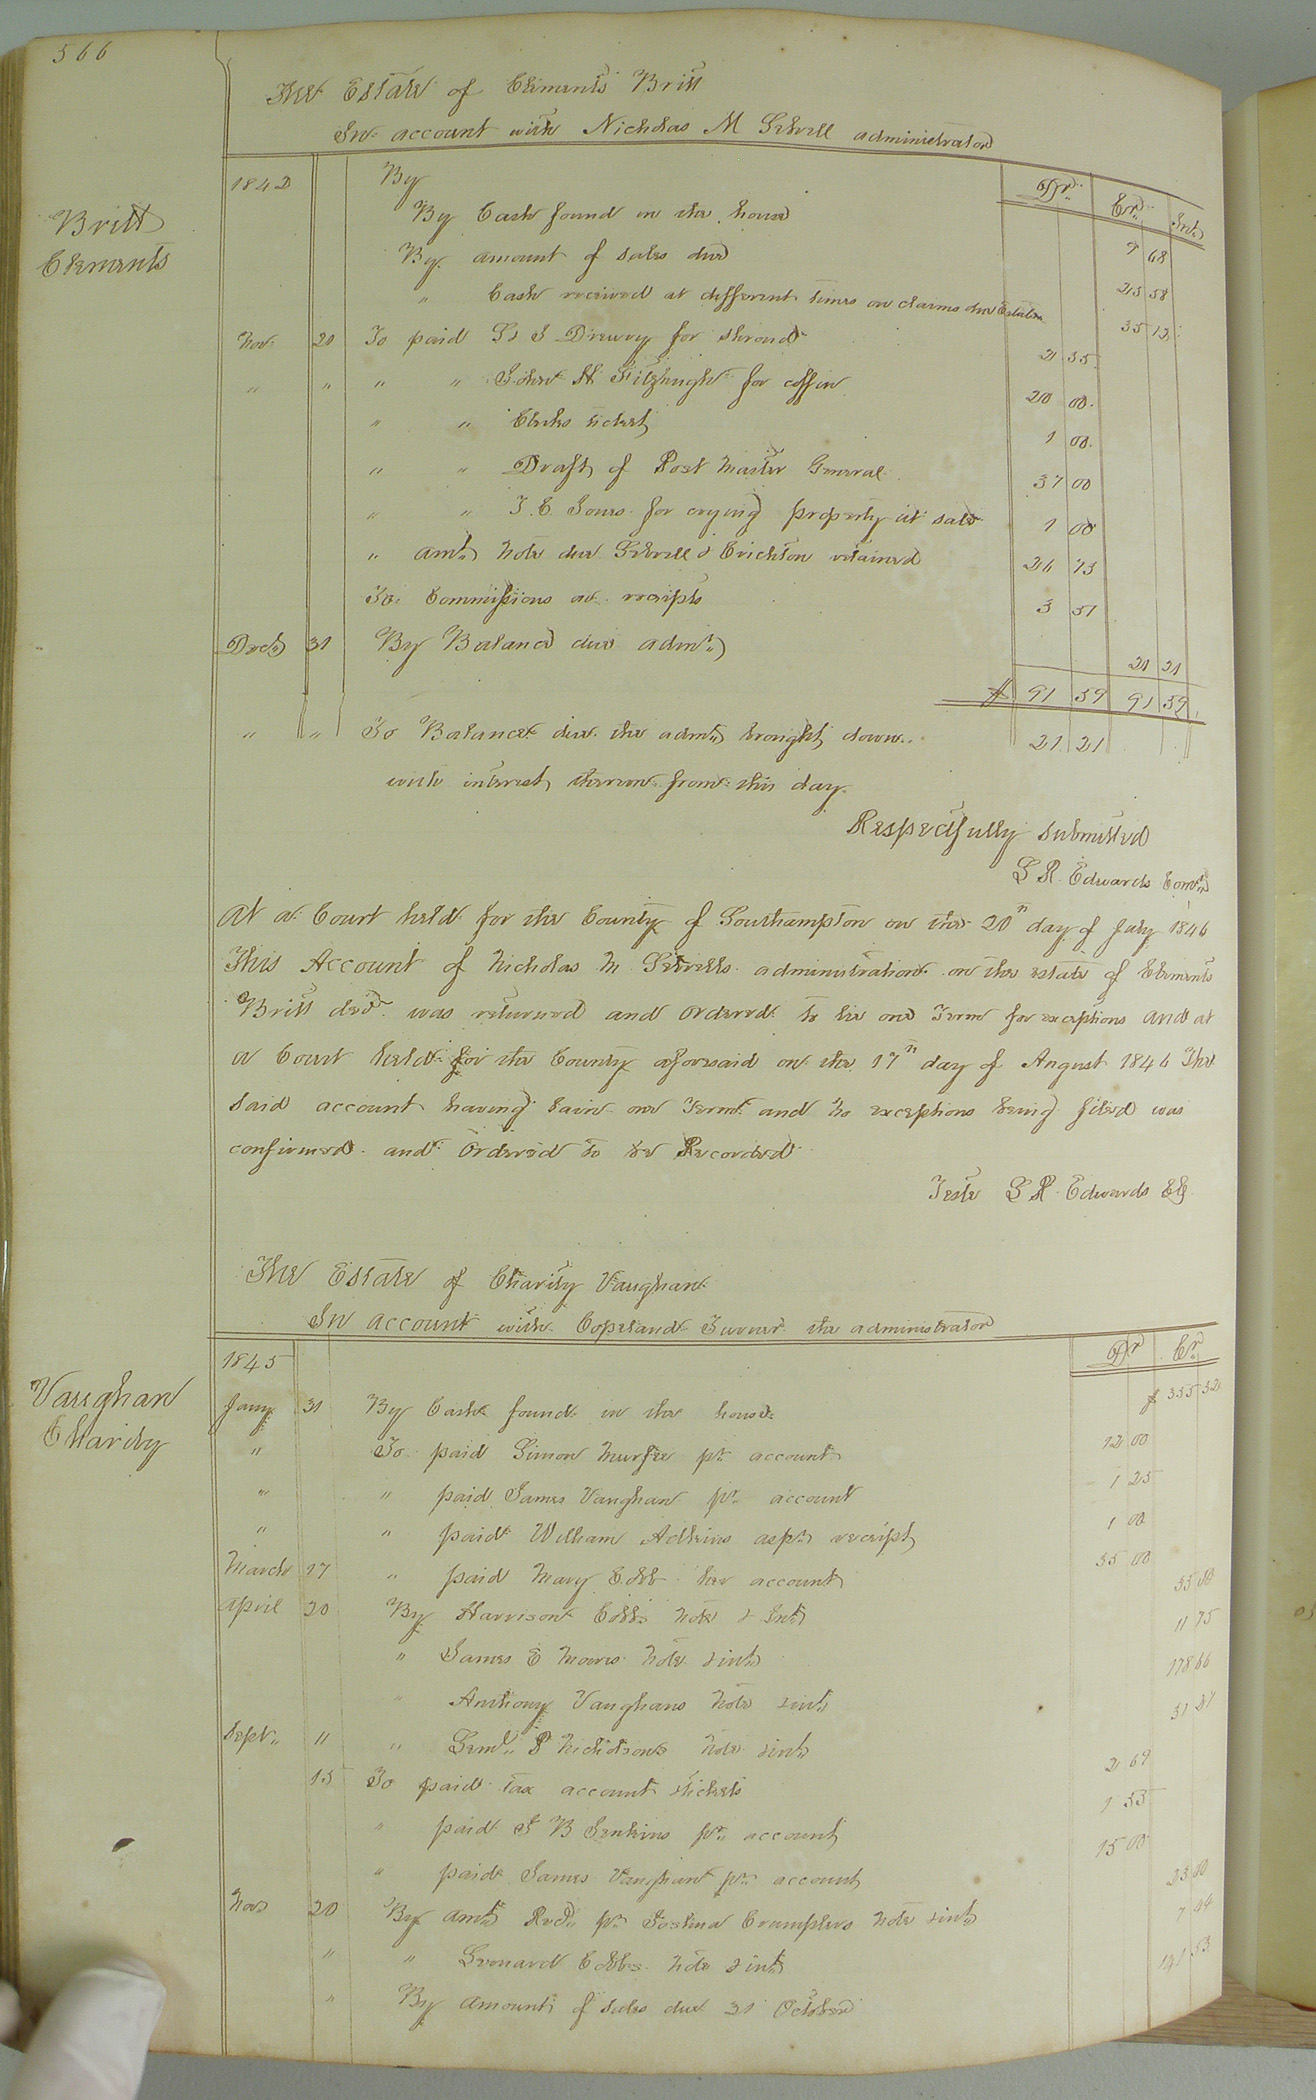 566
The Estate of Clements Britt
In account with Nicholas M Sebrell administrator
Britt
Clements
1842 By Dr. Cr. Int.
By Cash found in the house 9 68
By amount of sales due 25 58
" Cash received at different times on claims due Estate 35 12
Nov. 20 To paid S Drewry for shroud 2 35
" " " " H Fitzhugh for coffin 20 00
" " Clerks ticket 1 00
" " Draft of Post Master General 37 00
" " J. E. for crying property at sale 1 00
" amt. Note due Sebrell & Crichton retained 26 73
To Commissions on receipts 3 51
Decr. 31 By Balance due admr. 21 21
$ 91 59 91 59
" " To Balance due the admr. brought down 21 21
with interest thereon from this day
Respectfully submitted
L R Edwards Comr.
At a Court held for the County of Southampton on the 20th day of July 1846
This Account of Nicholas M Sebrells administration on the estate of Clements
Britt decd. was returned and ordered to lie one Term for exceptions and at
a Court held for the County aforesaid on the 17th day of August 1846 The
said account having lain one Term and no exceptions being filed was
confirmed and Ordered to be Recorded
Teste L R Edwards Clk
The Estate of Charity Vaughan
In account with Copeland Turner the administrator
Vaughan
Charity
1845 Dr Cr.
Jany. 31 By Cash found in the house $ 355 32
" To paid Simon Murfee pr. account 12 00
" " paid James Vaughan pr. account 1 25
" " paid William Adkins as pr. receipt 1 00
March 17 " paid Mary Cobb her account 35 00
April 30 By Harrison Cobbs note & Int. 35 50
" James E Note & int. 11 75
" Anthony Vaughans Note & int. 178 66
Sept. 11 " Leml. P Nicholsons note & int. 31 27
15 To paid tax account tickets 2 69
" paid J B Jenkins pr. account 1 53
" paid James Vaughan pr. account 15 00
Nov 20 By amt. Recd. pr. Joshua Cramplers Note & int. 23 00
" " Leonard Cobbs note & int. 7 44
" By amount of sales due 31 October 141 53